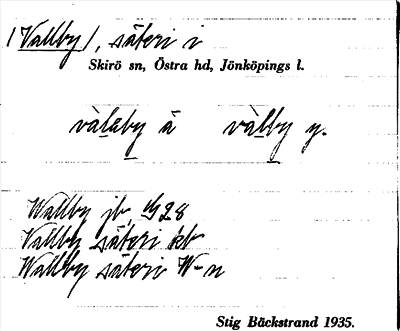 /Vallby/, säteri i
Skirö sn, Östra hd, Jönköpings l.
vàlaby ä vàlby y.
Wallby jb, 1/4 28
Vallby säteri kb
Wallby säteri W-n
Stig Bäckstrand 1935.